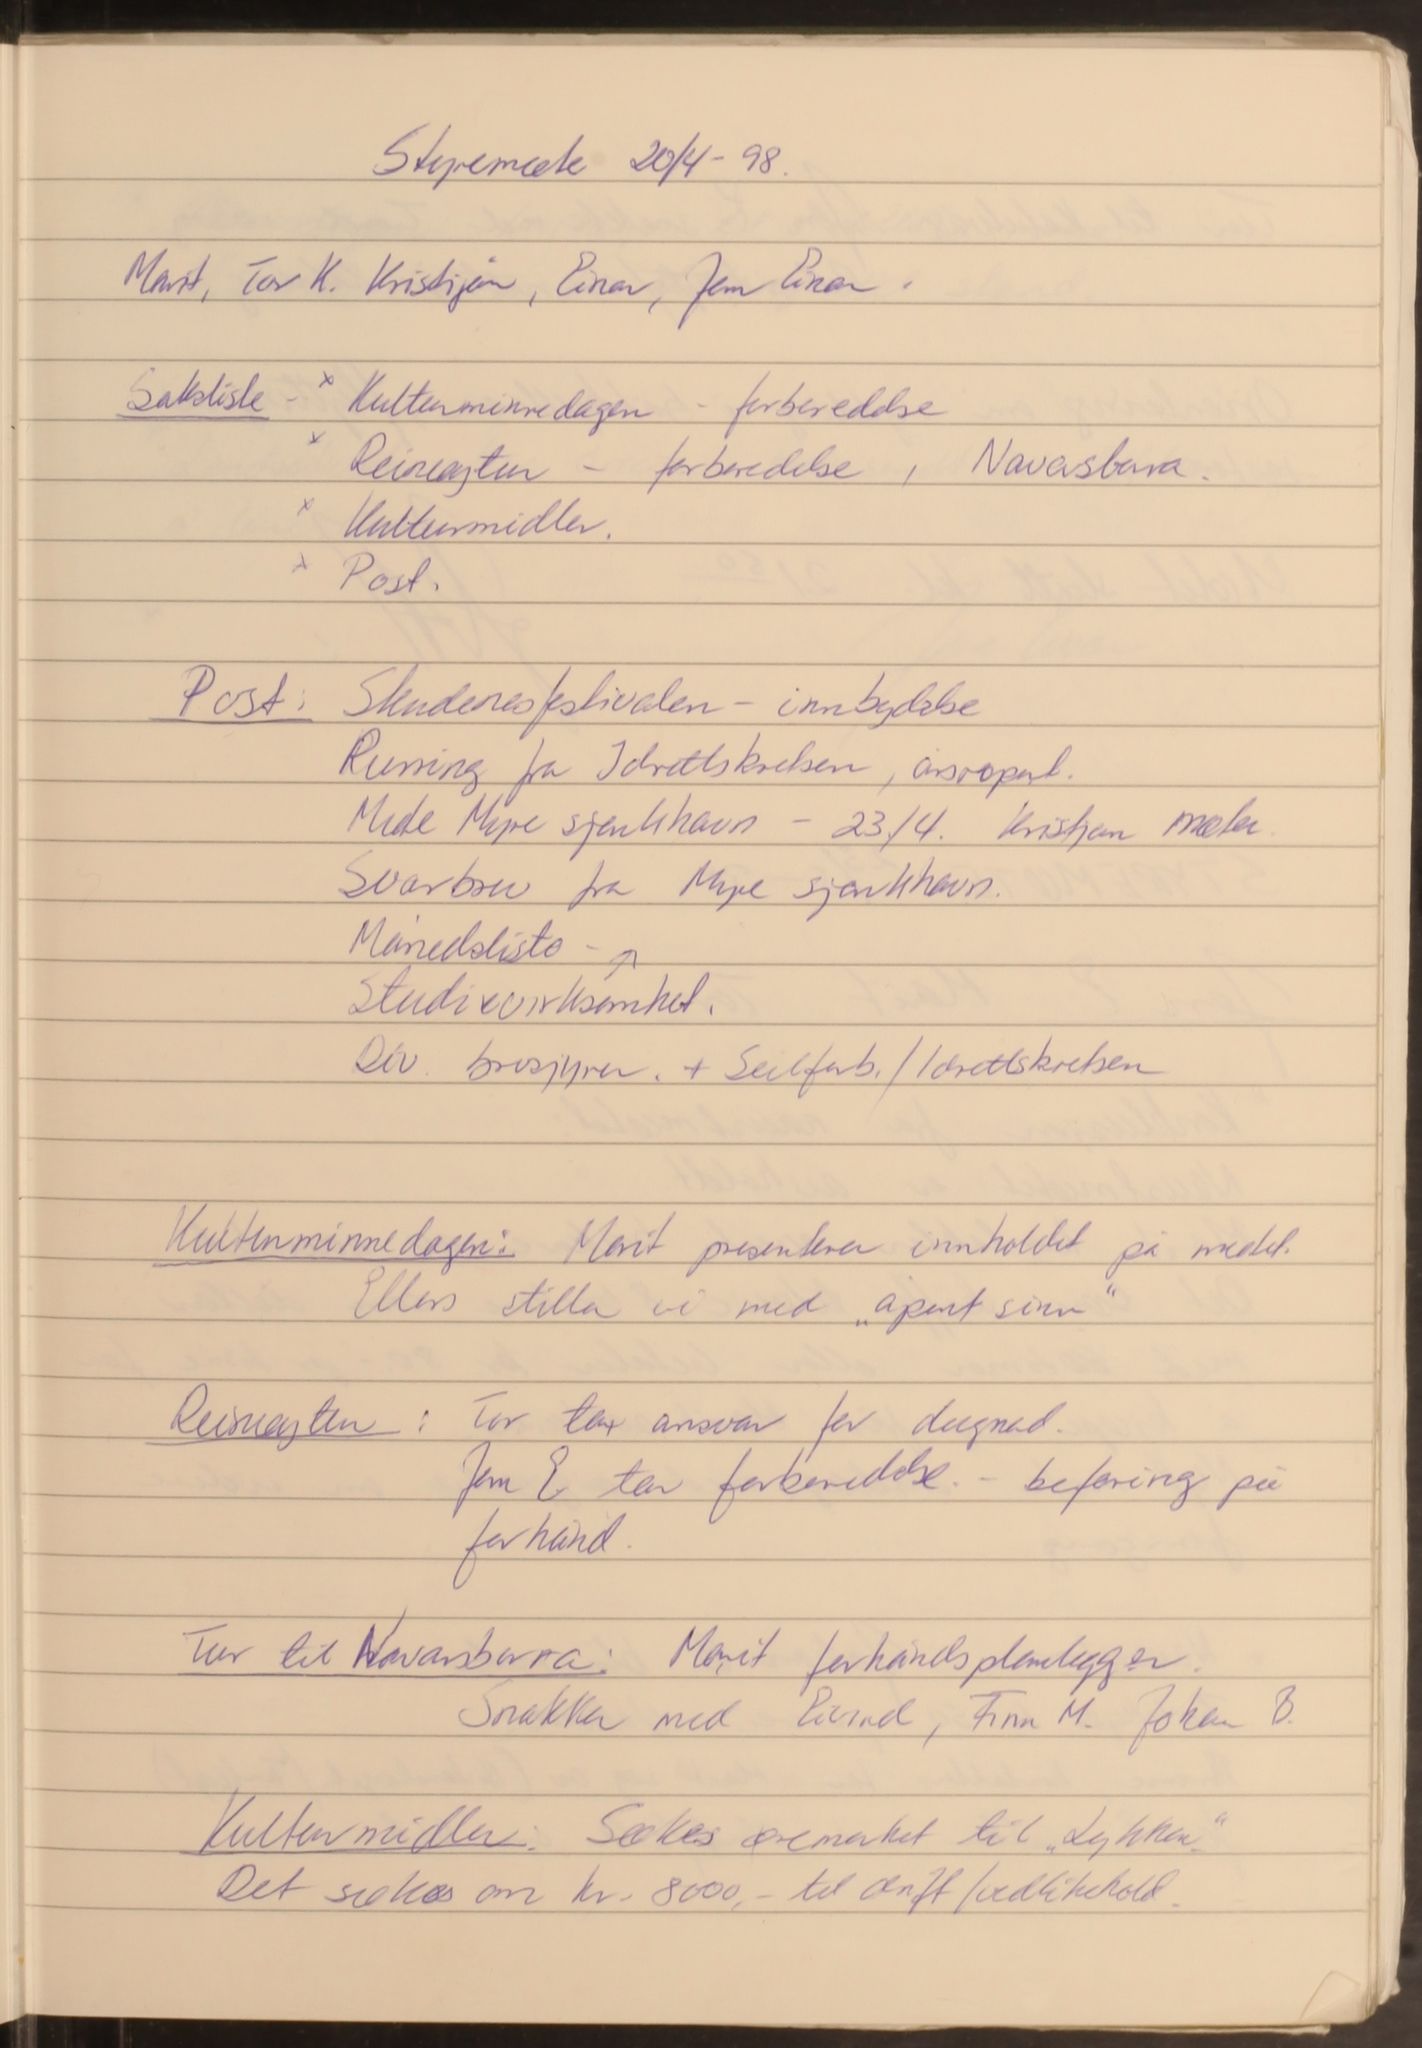 Styremøte 20/4-98.
Marit, Tor K. Kristjan, Einar, Jem Einar.
Saksliste - x Kulturminnedagen - forberedelse
x Reineagten - forberedelse, Navarsbarra.
x Kulturmidler.
x Post.
Post: Skudenesfestivalen - innbydelse
Runing fra Idrettskretsen, årsrapport.
Møte Myre sjarkhavn - 23/4. Kristjan møter.
Svarbrev fra Myre sjarkhavn.
Månedslisto -
Studievirksomhet.
Div. brosjyrer. + Seilforb./Idrettskretsen
Kulturminnedagen: Marit presenterer innholdet på møtet.
Ellers stiller vi med „åpent sinn"
Reineagten: Tor tar ansvar for dugnad.
Jem E tar forberedelse. - befaring på
forhånd.
Tur til Navarsbarra: Marit forhåndsplanlegger.
Snakker med Eivind, Finn M. Johan B.
Kulturmidler: Søkes øremerket til „Lykken"
Det søkes om kr. 8000,- til drift/vedlikehold.